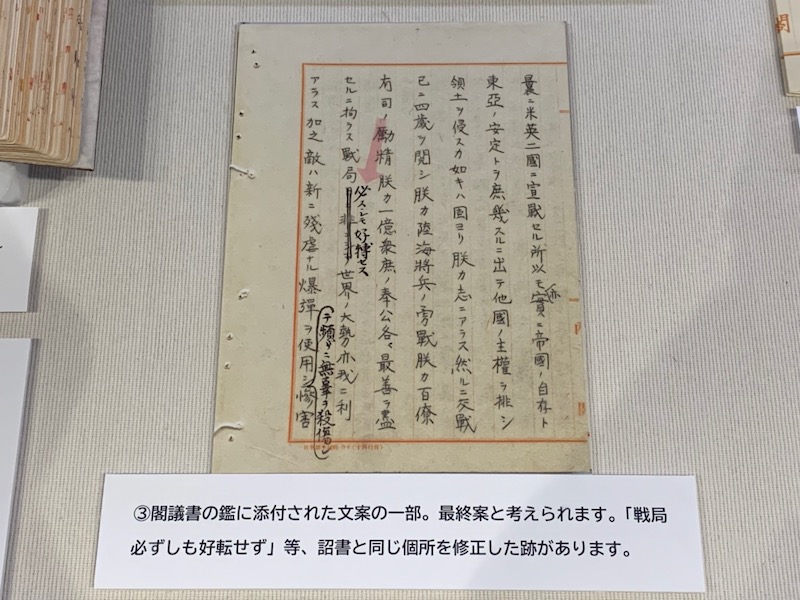 曩ニ米英二國ニ宣戰セル所以モ亦實ニ帝國ノ自存ト
東亞ノ安定トヲ庶幾スルニ出テ他國ノ主權ヲ排シ
領土ヲ侵スカ如キハ固ヨリ朕カ志ニアラス然ルニ交戰
已ニ四歳ヲ閲シ朕カ陸海將兵ノ勇戰朕カ百僚
有司ノ勵精朕カ一億衆庶ノ奉公各〻最善ヲ盡
必スシモ好轉セス
セルニ拘ラス戰局世界ノ大勢亦我ニ利
テ頻リニ無辜ヲ殺傷シ
アラス加之敵ハ新ニ殘虐ナル爆彈ヲ使用シ慘害
③閣議書の鑑に添付された文案の一部。最終案と考えられます。「戦局
必ずしも好転せず」等、詔書と同じ個所を修正した跡があります。